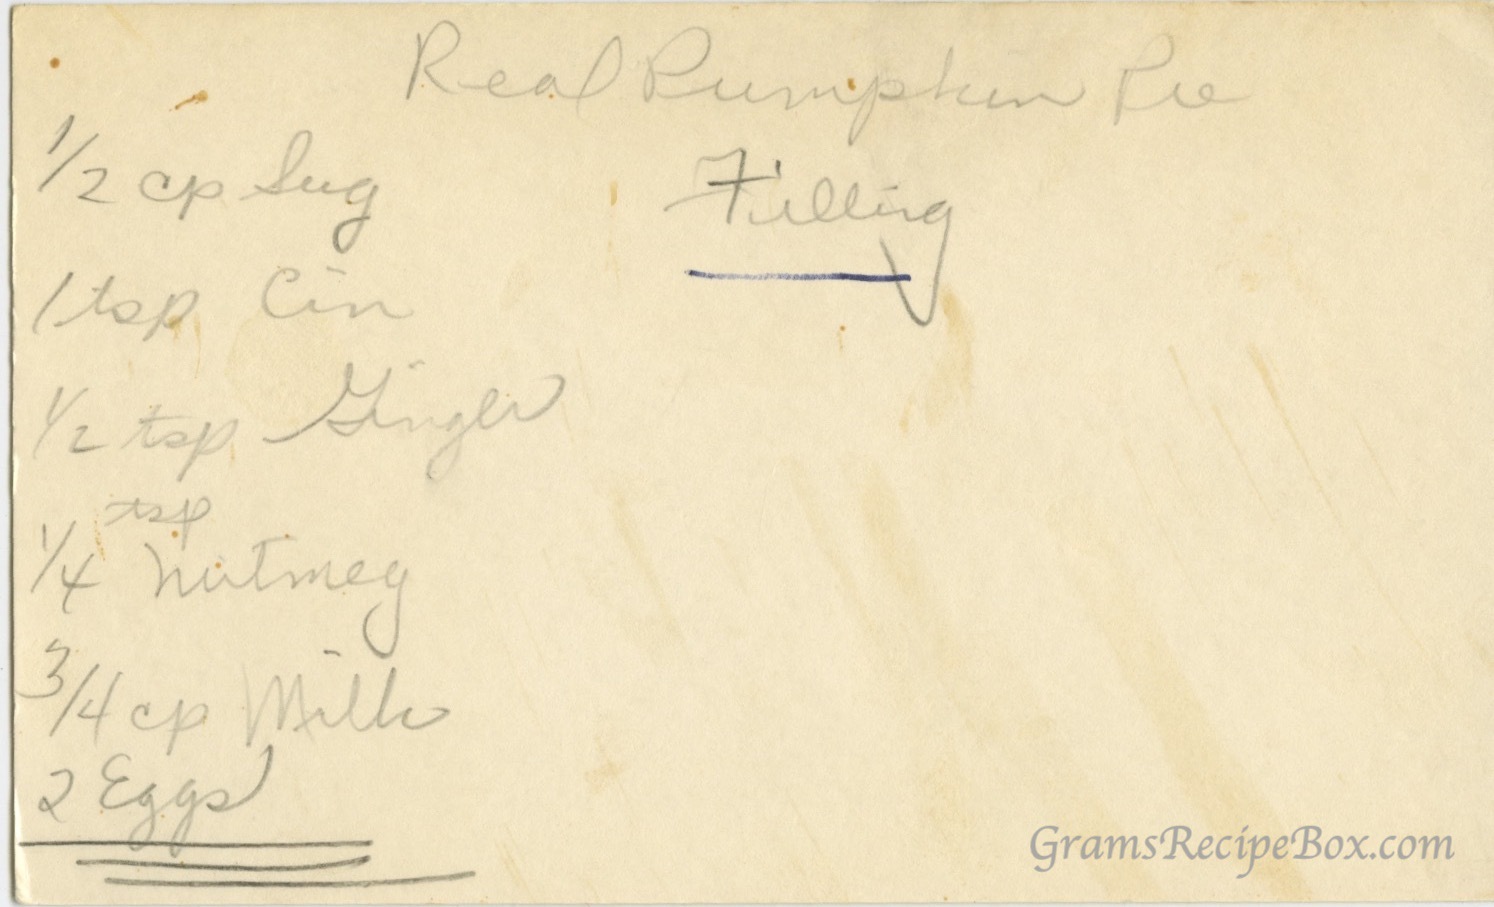 Real Pumpkin Pie
Filling
1/2 cp Sug
1 tsp Cin
1/2 tsp Ginger
tsp
1/4 Nutmeg
3/4 cp Milk
2 Eggs
GramsRecipeBox.com